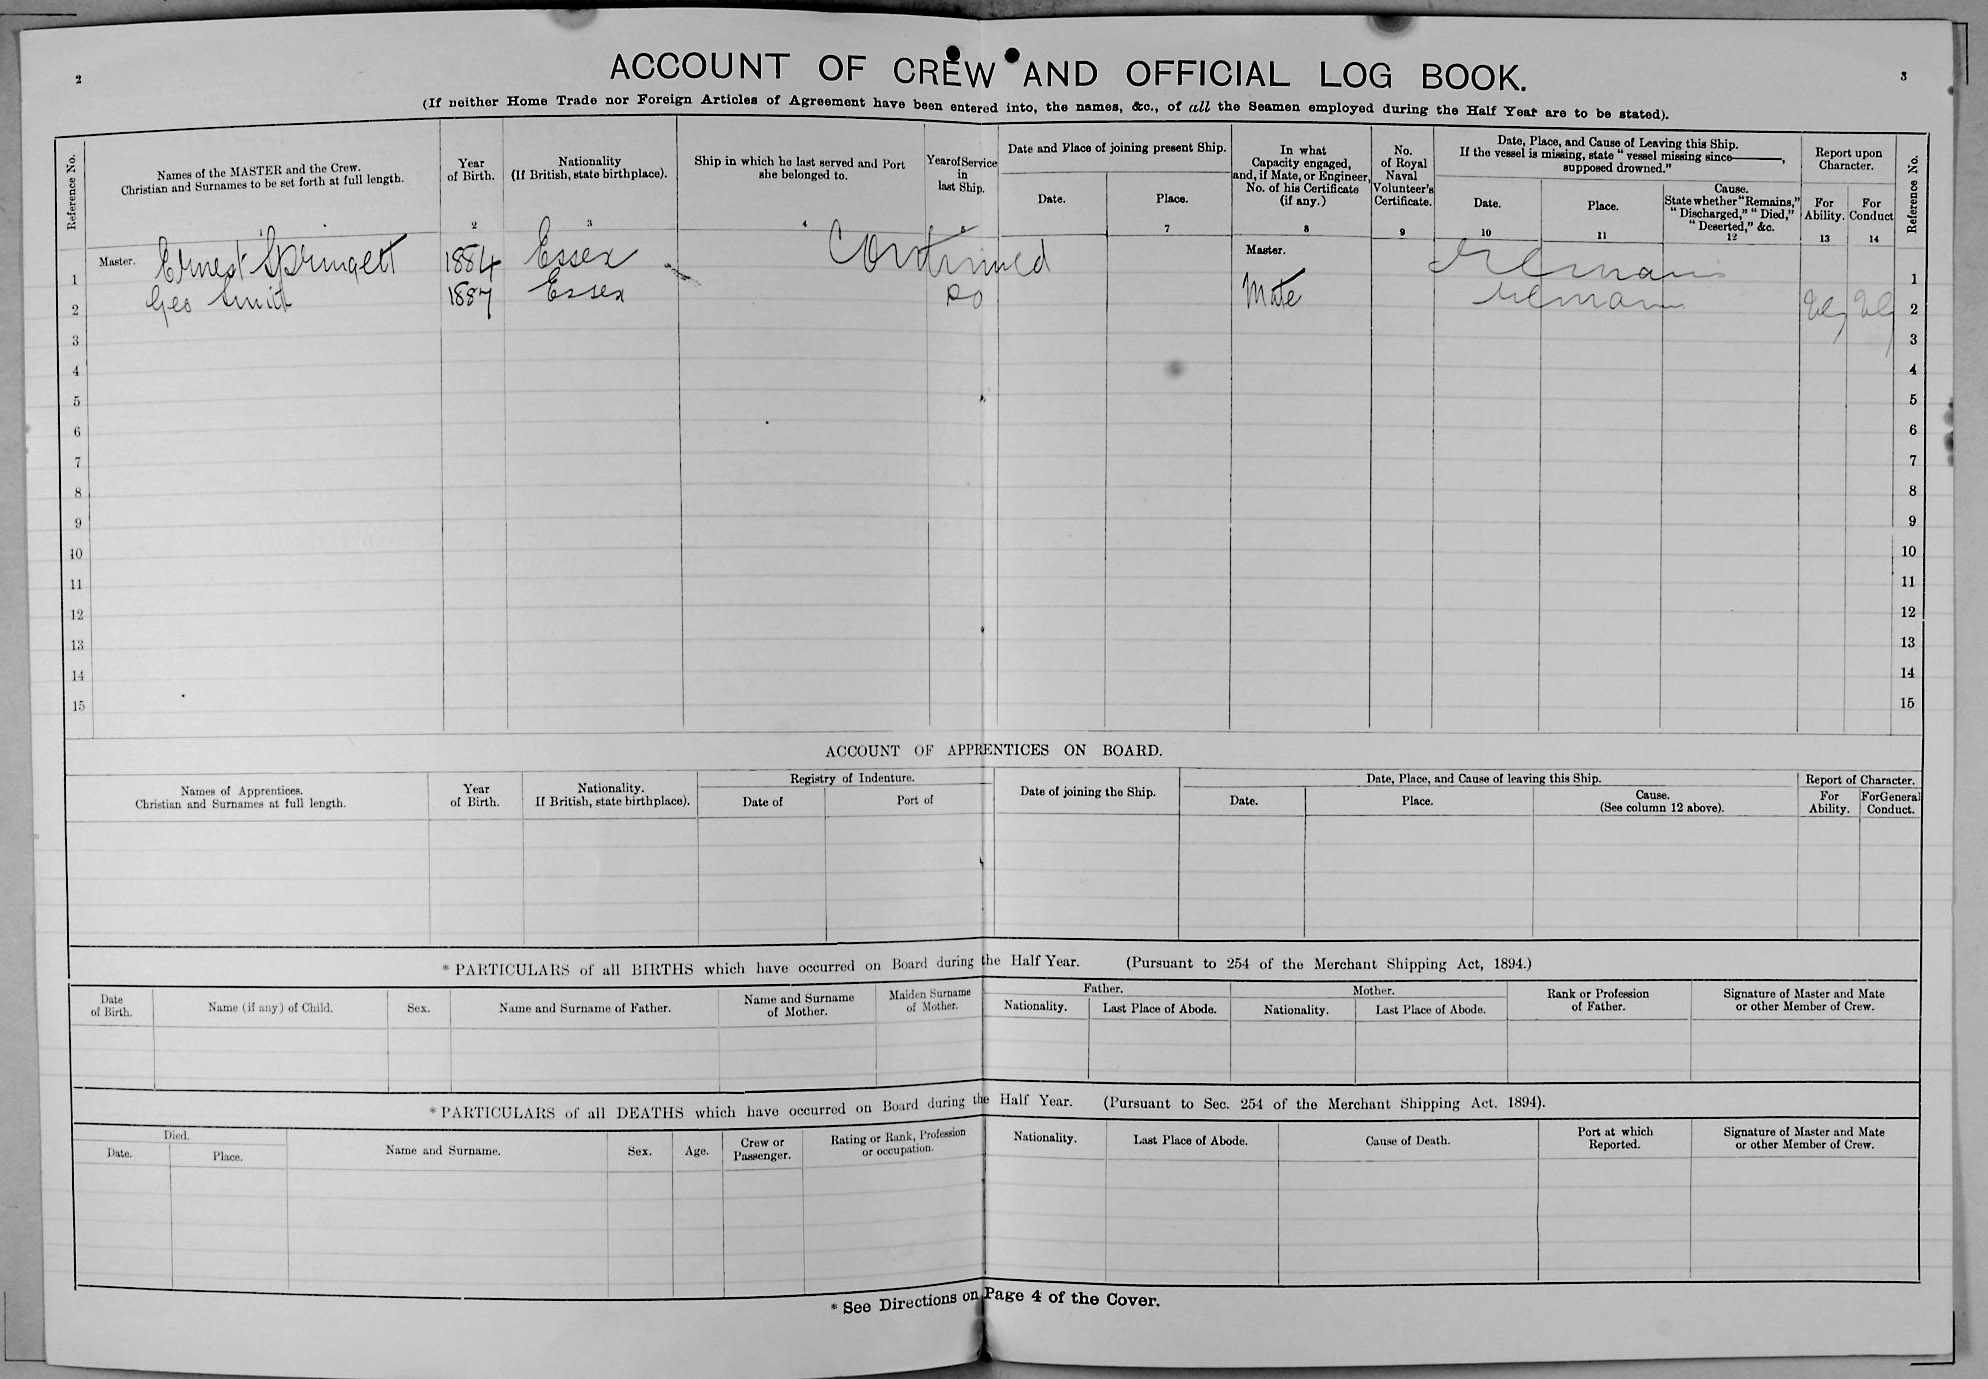 2
3
ACCOUNT OF CREW AND OFFICIAL LOG BOOK.
(If neither Home Trade nor Foreign Articles of Agreement have been entered into, the names, &c., of all the Seamen employed during the Half Year are to be stated).
Reference No.
Names of the MASTER and the Crew.
Christian and Surnames to be set forth at full length.
Year
of Birth.
2
Nationality
(If British, state birthplace).
3
Ship in which he last served and Port
she belonged to.
4
Year of Service
in
last Ship.
Date and Place of joining present Ship.
Date.
Place.
7
In what
Capacity engaged,
and, if Mate, or Engineer,
No. of his Certificate
(if any.)
8
No.
of Royal
Naval
Volunteer's
Certificate.
9
Date, Place, and Cause of Leaving this Ship.
If the vessel is missing, state "vessel missing since———,
supposed drowned."
Date.
10
Place.
11
Cause.
State whether "Remains,"
"Discharged," "Died,"
"Deserted," &c.
12
Report upon
Character.
For
Ability.
13
For
Conduct
14
Reference No.
1 Master. Ernest Springett 1884 Essex Continued Master. remains 1
2 Geo Smith 1887 Essex Do Mate remains VG VG 2
3 3
4 4
5 5
6 6
7 7
8 8
9 9
10 10
11 11
12 12
13 13
14 14
15 15
ACCOUNT OF APPRENTICES ON BOARD.
Names of Apprentices.
Christian and Surnames at full length.
Year
of Birth.
Nationality.
If British, state birthplace).
Registry of Indenture.
Date of
Port of
Date of joining the Ship.
Date, Place, and Cause of leaving this Ship.
Date.
Place.
Cause.
(See column 12 above).
Report of Character.
For
Ability.
For General
Conduct.
* PARTICULARS of all BIRTHS which have occurred on Board during the Half Year. (Pursuant to 254 of the Merchant Shipping Act, 1894.)
Date
of Birth.
Name (if any) of Child.
Sex.
Name and Surname of Father.
Name and Surname
of Mother.
Maiden Surname
of Mother.
Father.
Nationality.
Last Place of Abode.
Mother.
Nationality.
Last Place of Abode.
Rank or Profession
of Father.
Signature of Master and Mate
or other Member of Crew.
* PARTICULARS of all DEATHS which have occurred on Board during the Half Year. (Pursuant to Sec. 254 of the Merchant Shipping Act. 1894).
Died.
Date.
Place.
Name and Surname.
Sex.
Age.
Crew or
Passenger.
Rating or Rank, Profession
or occupation.
Nationality.
Last Place of Abode.
Cause of Death.
Port at which
Reported.
Signature of Master and Mate
or other Member of Crew.
* See Directions on Page 4 of the Cover.